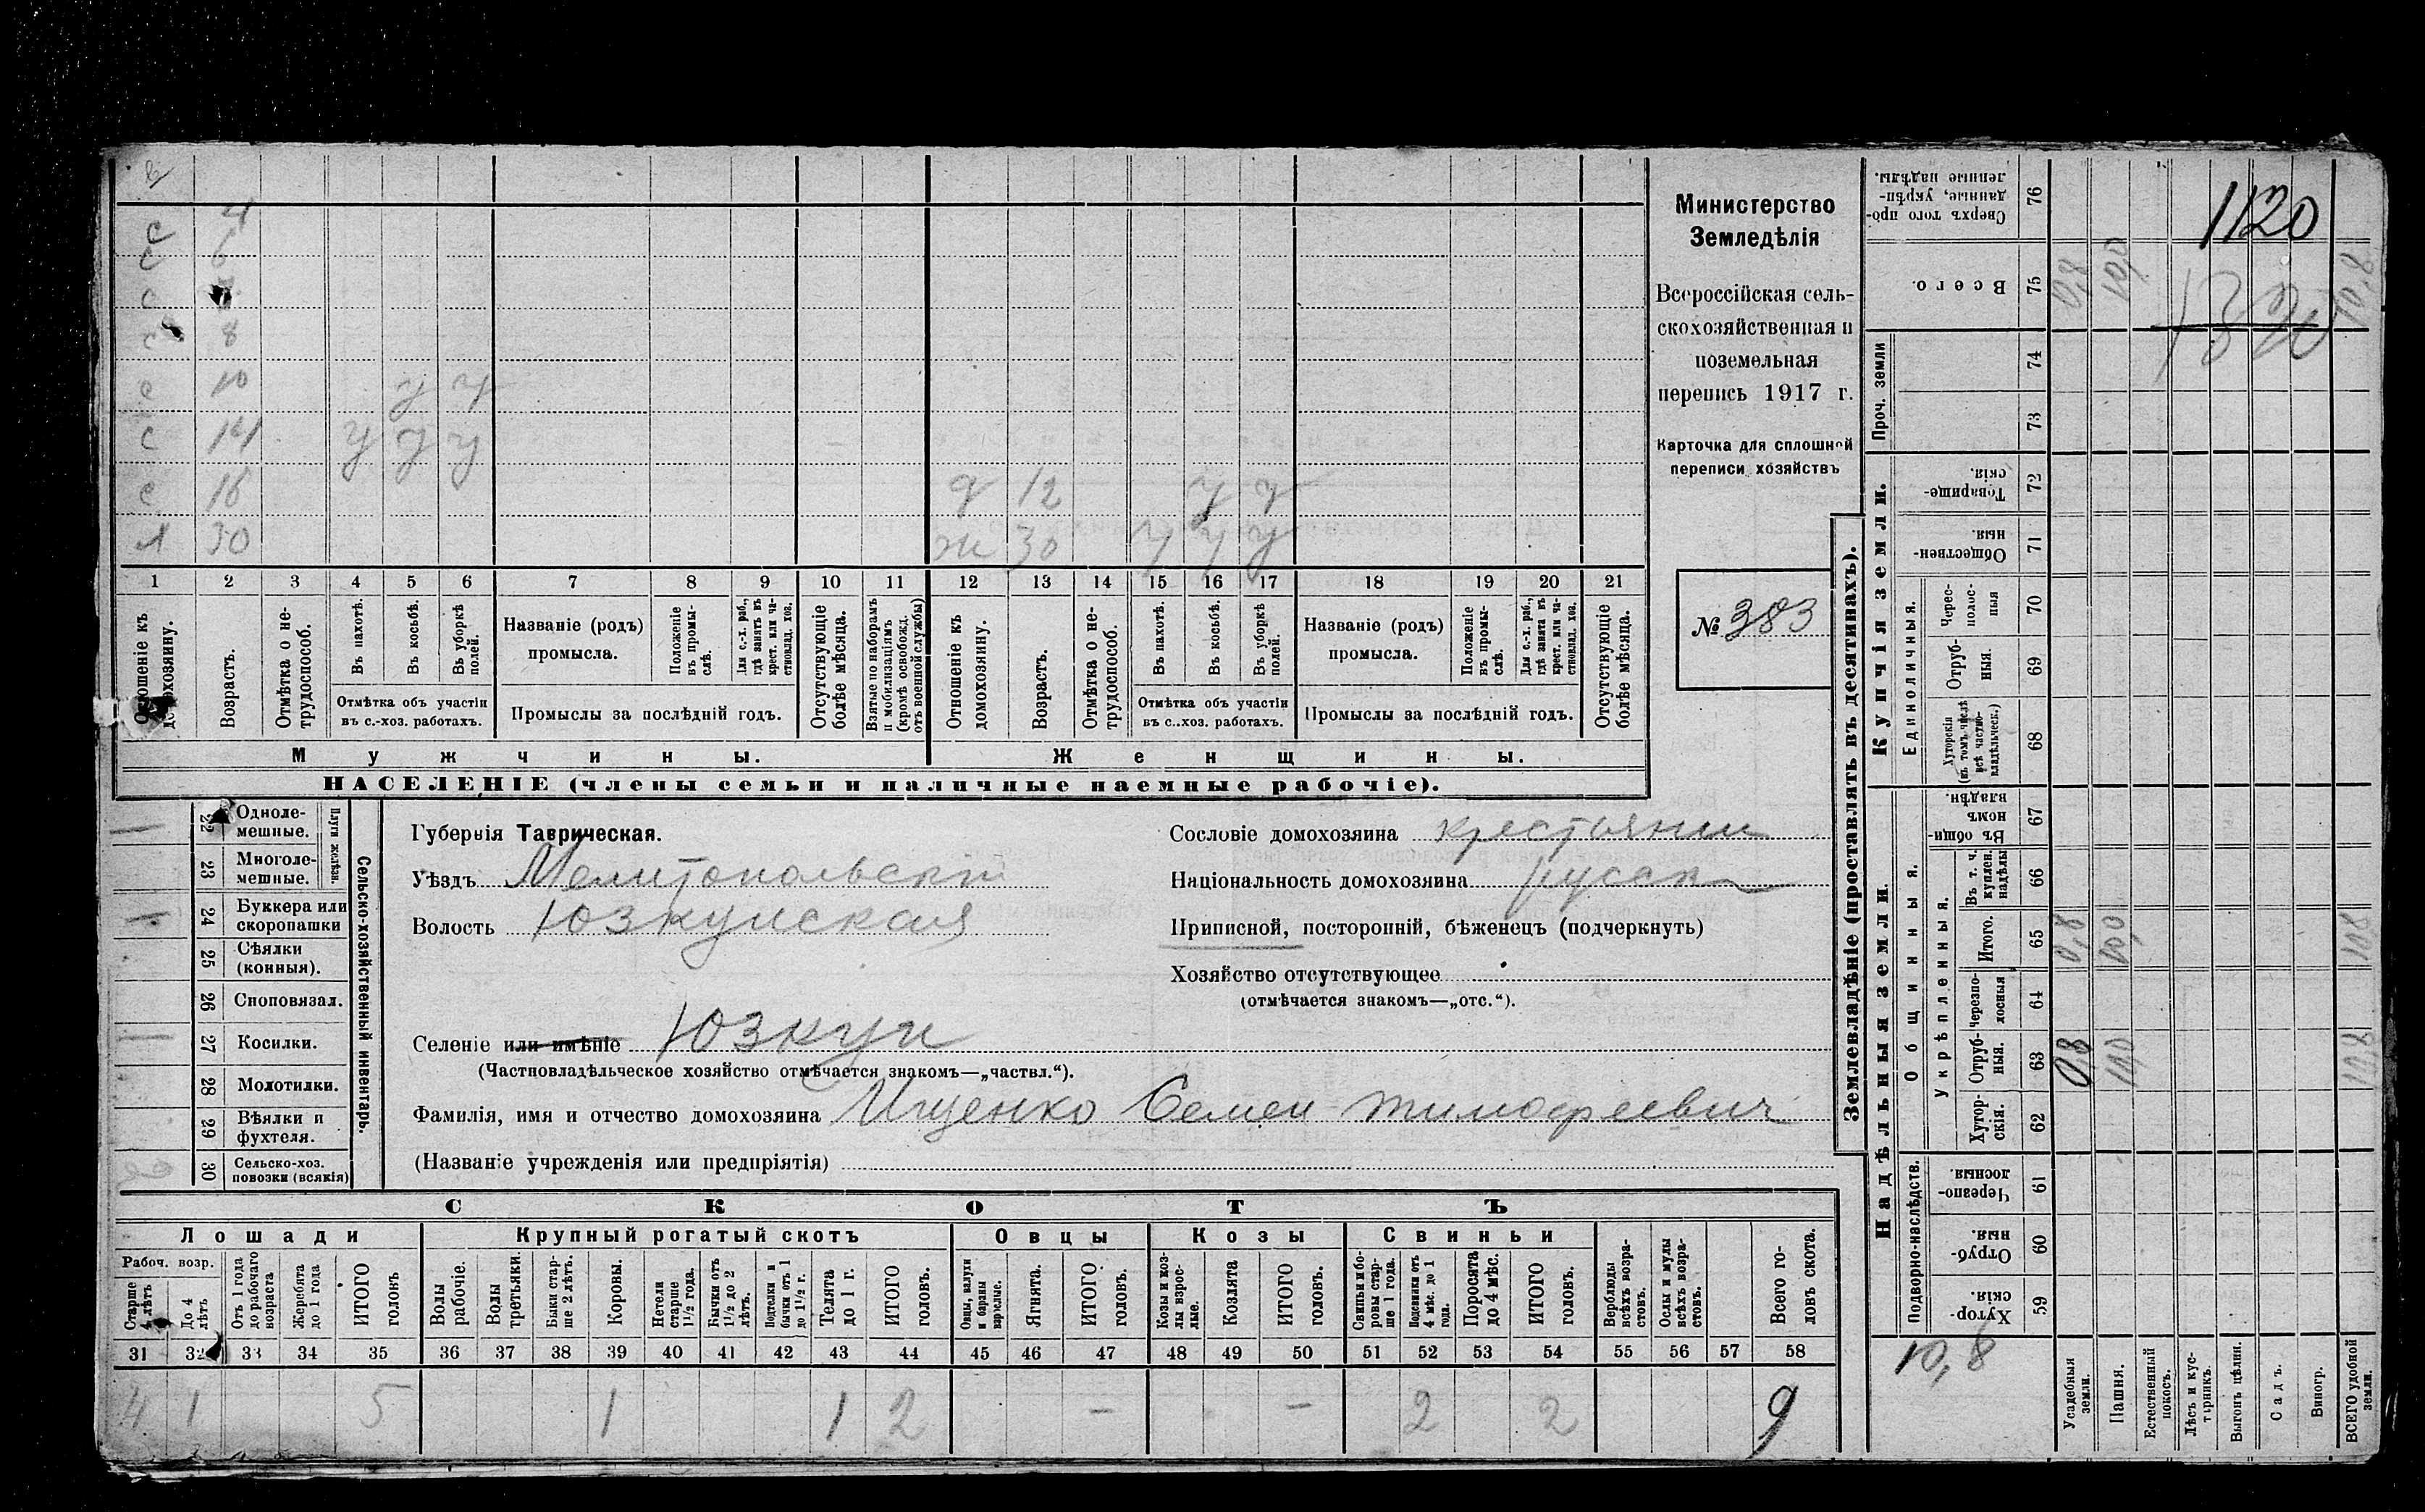 в
с 4
с 6
с
с 8
с 10 у у
с 14 у у у
с 16 д 12 у у
Я 30 ж 30 у у у
1 2 3 4 5 6 7 8 9 10 11 12 13 14 15 16 17 18 19 20 21
Отношеніе къ домохозяину.
Возрастъ.
Отмѣтка о не-
трудоспособ.
Въ пахотѣ.
Въ косьбѣ.
Въ уборкѣ
полей.
Отмѣтка объ участіи
въ с.-хоз. работахъ.
Названіе (родъ)
промысла.
Положеніе
въ промы-
слѣ.
Для с.-х. раб.,
гдѣ занятъ въ
крест. или ча-
стновлад. хоз.
Промыслы за послѣдній годъ.
Отсутствующіе
болѣе мѣсяца.
Взятые по наборамъ
и мобилизаціямъ
(кромѣ освобожд.
отъ военной службы)
Отношеніе къ
домохозяину.
Возрастъ.
Отмѣтка о не-
трудоспособ.
Въ пахотѣ.
Въ косьбѣ.
Въ уборкѣ
полей.
Отмѣтка объ участіи
въ с.-хоз. работахъ.
Названіе (родъ)
промысла.
Положеніе
въ промы-
слѣ.
Для с.-х. раб.,
гдѣ занята въ
крест. или ча-
стновлад. хоз.
Промыслы за послѣдній годъ.
Отсутствующіе
болѣе мѣсяца.
Мужчины. Женщины.
НАСЕЛЕНІЕ (члены семьи и наличные наемные рабочіе).
Министерство
Земледѣлія
Всероссійская сель-
скохозяйственная и
поземельная
перепись 1917 г.
Карточка для сплошной
переписи хозяйствъ
№ 383
22 Одноле-
мешные.
23 Многоле-
мешные.
Плуги желѣзн.
24 Буккера или
скоропашки
25 Сѣялки
(конныя).
26 Сноповязал.
27 Косилки.
28 Молотилки.
29 Вѣялки и
фухтеля.
30 Сельско-хоз.
повозки (всякія)
Сельско-хозяйственный инвентарь.
Губернія Таврическая.
Уѣздъ Мелитопольскій
Волость Юзкуйская
Селеніе или имѣніе Юзкуи
(Частновладѣльческое хозяйство отмѣчается знакомъ—„частвл.“).
Фамилія, имя и отчество домохозяина Ищенко Семен Тимофеевич
(Названіе учрежденія или предпріятія)
Сословіе домохозяина крестьянин
Національность домохозяина русск
Приписной, посторонній, бѣженецъ (подчеркнуть)
Хозяйство отсутствующее
(отмѣчается знакомъ—„отс.“).
СКОТЪ
Лошади Крупный рогатый скотъ Овцы Козы Свиньи
Рабоч. возр.
Старше
4 лѣтъ
До 4
лѣтъ
Отъ 1 года
до рабочаго
возраста
Жеребята
до 1 года
ИТОГО
головъ
Волы
рабочіе.
Волы
третьяки.
Быки стар-
ше 2 лѣтъ.
Коровы.
Нетели
старше
1½ года.
Бычки отъ
1½ до 2
лѣтъ.
Подтелки и
бычки отъ 1
до 1½ г.
Телята
до 1 г.
ИТОГО
головъ.
Овцы, валухи
и бараны
взрослые.
Ягнята.
ИТОГО
головъ.
Козы и коз-
лы взрос-
лые.
Козлята
ИТОГО
головъ.
Свиньи и бо-
ровы стар-
ше 1 года.
Подсвинки отъ
4 мѣс. до 1
года.
Поросята
до 4 мѣс.
ИТОГО
головъ.
Верблюды
всѣхъ возра-
стовъ.
Ослы и мулы
всѣхъ возра-
стовъ.
Всего го-
ловъ скота.
31 32 33 34 35 36 37 38 39 40 41 42 43 44 45 46 47 48 49 50 51 52 53 54 55 56 57 58
4 1 5 1 1 2 – – 2 2 9
Землевладѣніе (проставлять въ десятинахъ).
Сверхъ того про-
данные, укрѣп-
ленные надѣлы.
76
1120
Всего.
75 0,8 10,0 10,8
Проч. земли
74
73
Купчія земли.
Товарище-
скія.
72
Обществен-
ныя.
71
Единоличныя.
Черес-
полос-
ныя
70
Отруб-
ныя.
69
Хуторскія
(въ томъ числѣ
всѣ частно-
владѣльческ.)
68
Надѣльныя земли.
Общинныя.
Въ общин-
номъ
владѣн.
67
Укрѣпленныя.
Въ т. ч.
куплен.
надѣлы
66
Итого.
65 0,8 10,0 10,8
Черезпо-
лосныя
64
Отруб-
ныя.
63 0,8 10,0 10,8
Хутор-
скія.
62
Подворно-наслѣдств.
Черезпо-
лосныя
61
Отруб-
ныя.
60
Хутор-
скія.
59
10,8
Усадебныя
земли.
Пашня.
Естественный
покосъ.
Лѣсъ и кус-
тарникъ.
Выгонъ цѣлин.
Садъ.
Виногр.
ВСЕГО удобной
земли.